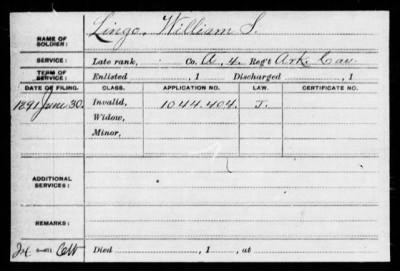 NAME OF SOLDIER: Lingo, William S.
SERVICE: Late rank, Co. A, 4 Reg't Ark. Cav.
TERM OF SERVICE: Enlisted , 1 Discharged , 1
DATE OF FILING. CLASS. APPLICATION NO. LAW. CERTIFICATE NO.
1891 June 30. Invalid, 1044.404.
Widow,
Minor,
ADDITIONAL SERVICES:
REMARKS:
Died , 1 , at